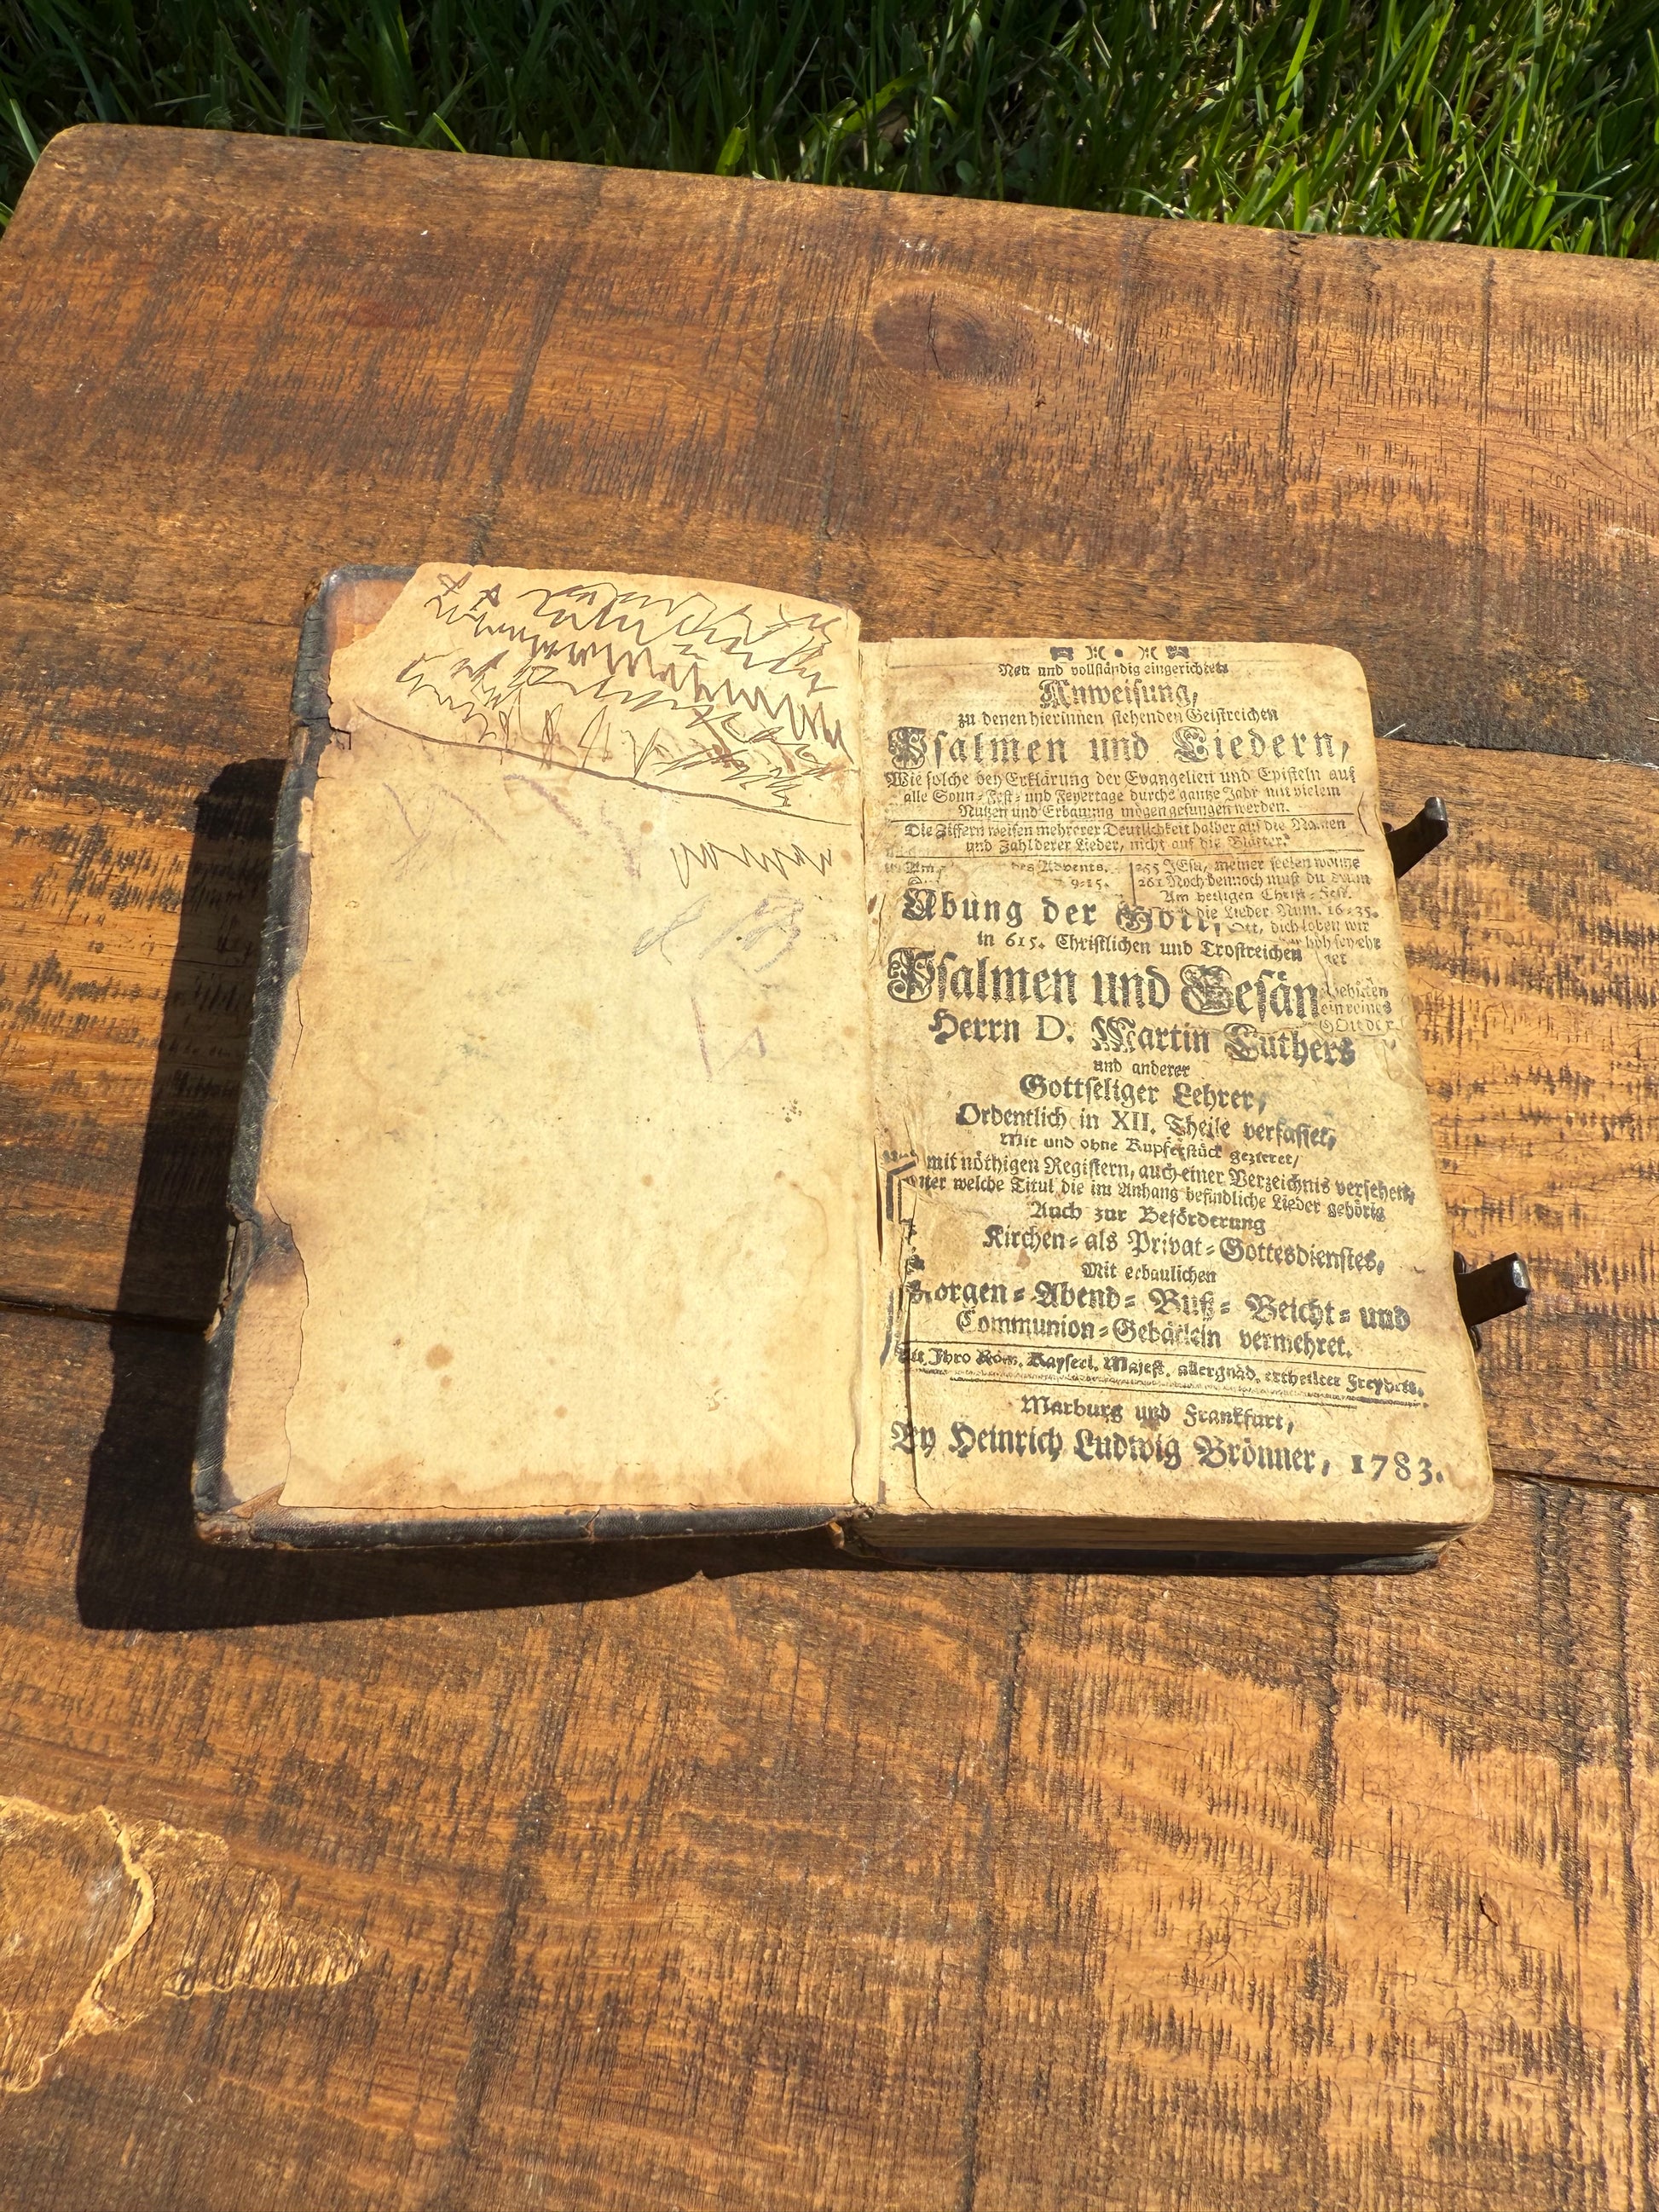 Neu und vollständig eingerichtete
Anweisung,
zu denen hierinnen stehenden Geistreichen
Psalmen und Liedern,
Wie solche bey Erklärung der Evangelien und Episteln auf
alle Sonn- Fest- und Feyertage durchs gantze Jahr mit vielem
Nutzen und Erbauung mögen gesungen werden.
Die Ziffern weisen mehrerer Deutlichkeit halber auf die Namen
und Zahl derer Lieder, nicht auf die Blätter.
Am des Advents. 255 JEsu, meiner seelen wonne
9-15. 261 Noch dennoch must du drum
Am heiligen Christ-Fest.
die Lieder Num. 16-35.
Übung der
dich loben wir
in 615. Christlichen und Trostreichen
Psalmen und Gesän
Herrn D. Martin Luthers
und anderer
Gottseliger Lehrer,
Ordentlich in XII. Theile verfasset,
Mit und ohne Kupferstück gezieret/
mit nöthigen Registern, auch einer Verzeichnis versehen,
welche Titul die im Anhang befindliche Lieder gehörig
Auch zur Beförderung
Kirchen- als Privat-Gottesdienstes,
Mit erbaulichen
orgen- Abend- Buß- Beicht- und
Communion-Gebätlein vermehret.
Ihro Röm. Kayserl. Majest. allergnäd. ertheilter Freyheit.
Marburg und Frankfurt,
By Heinrich Ludwig Brönner, 1783.